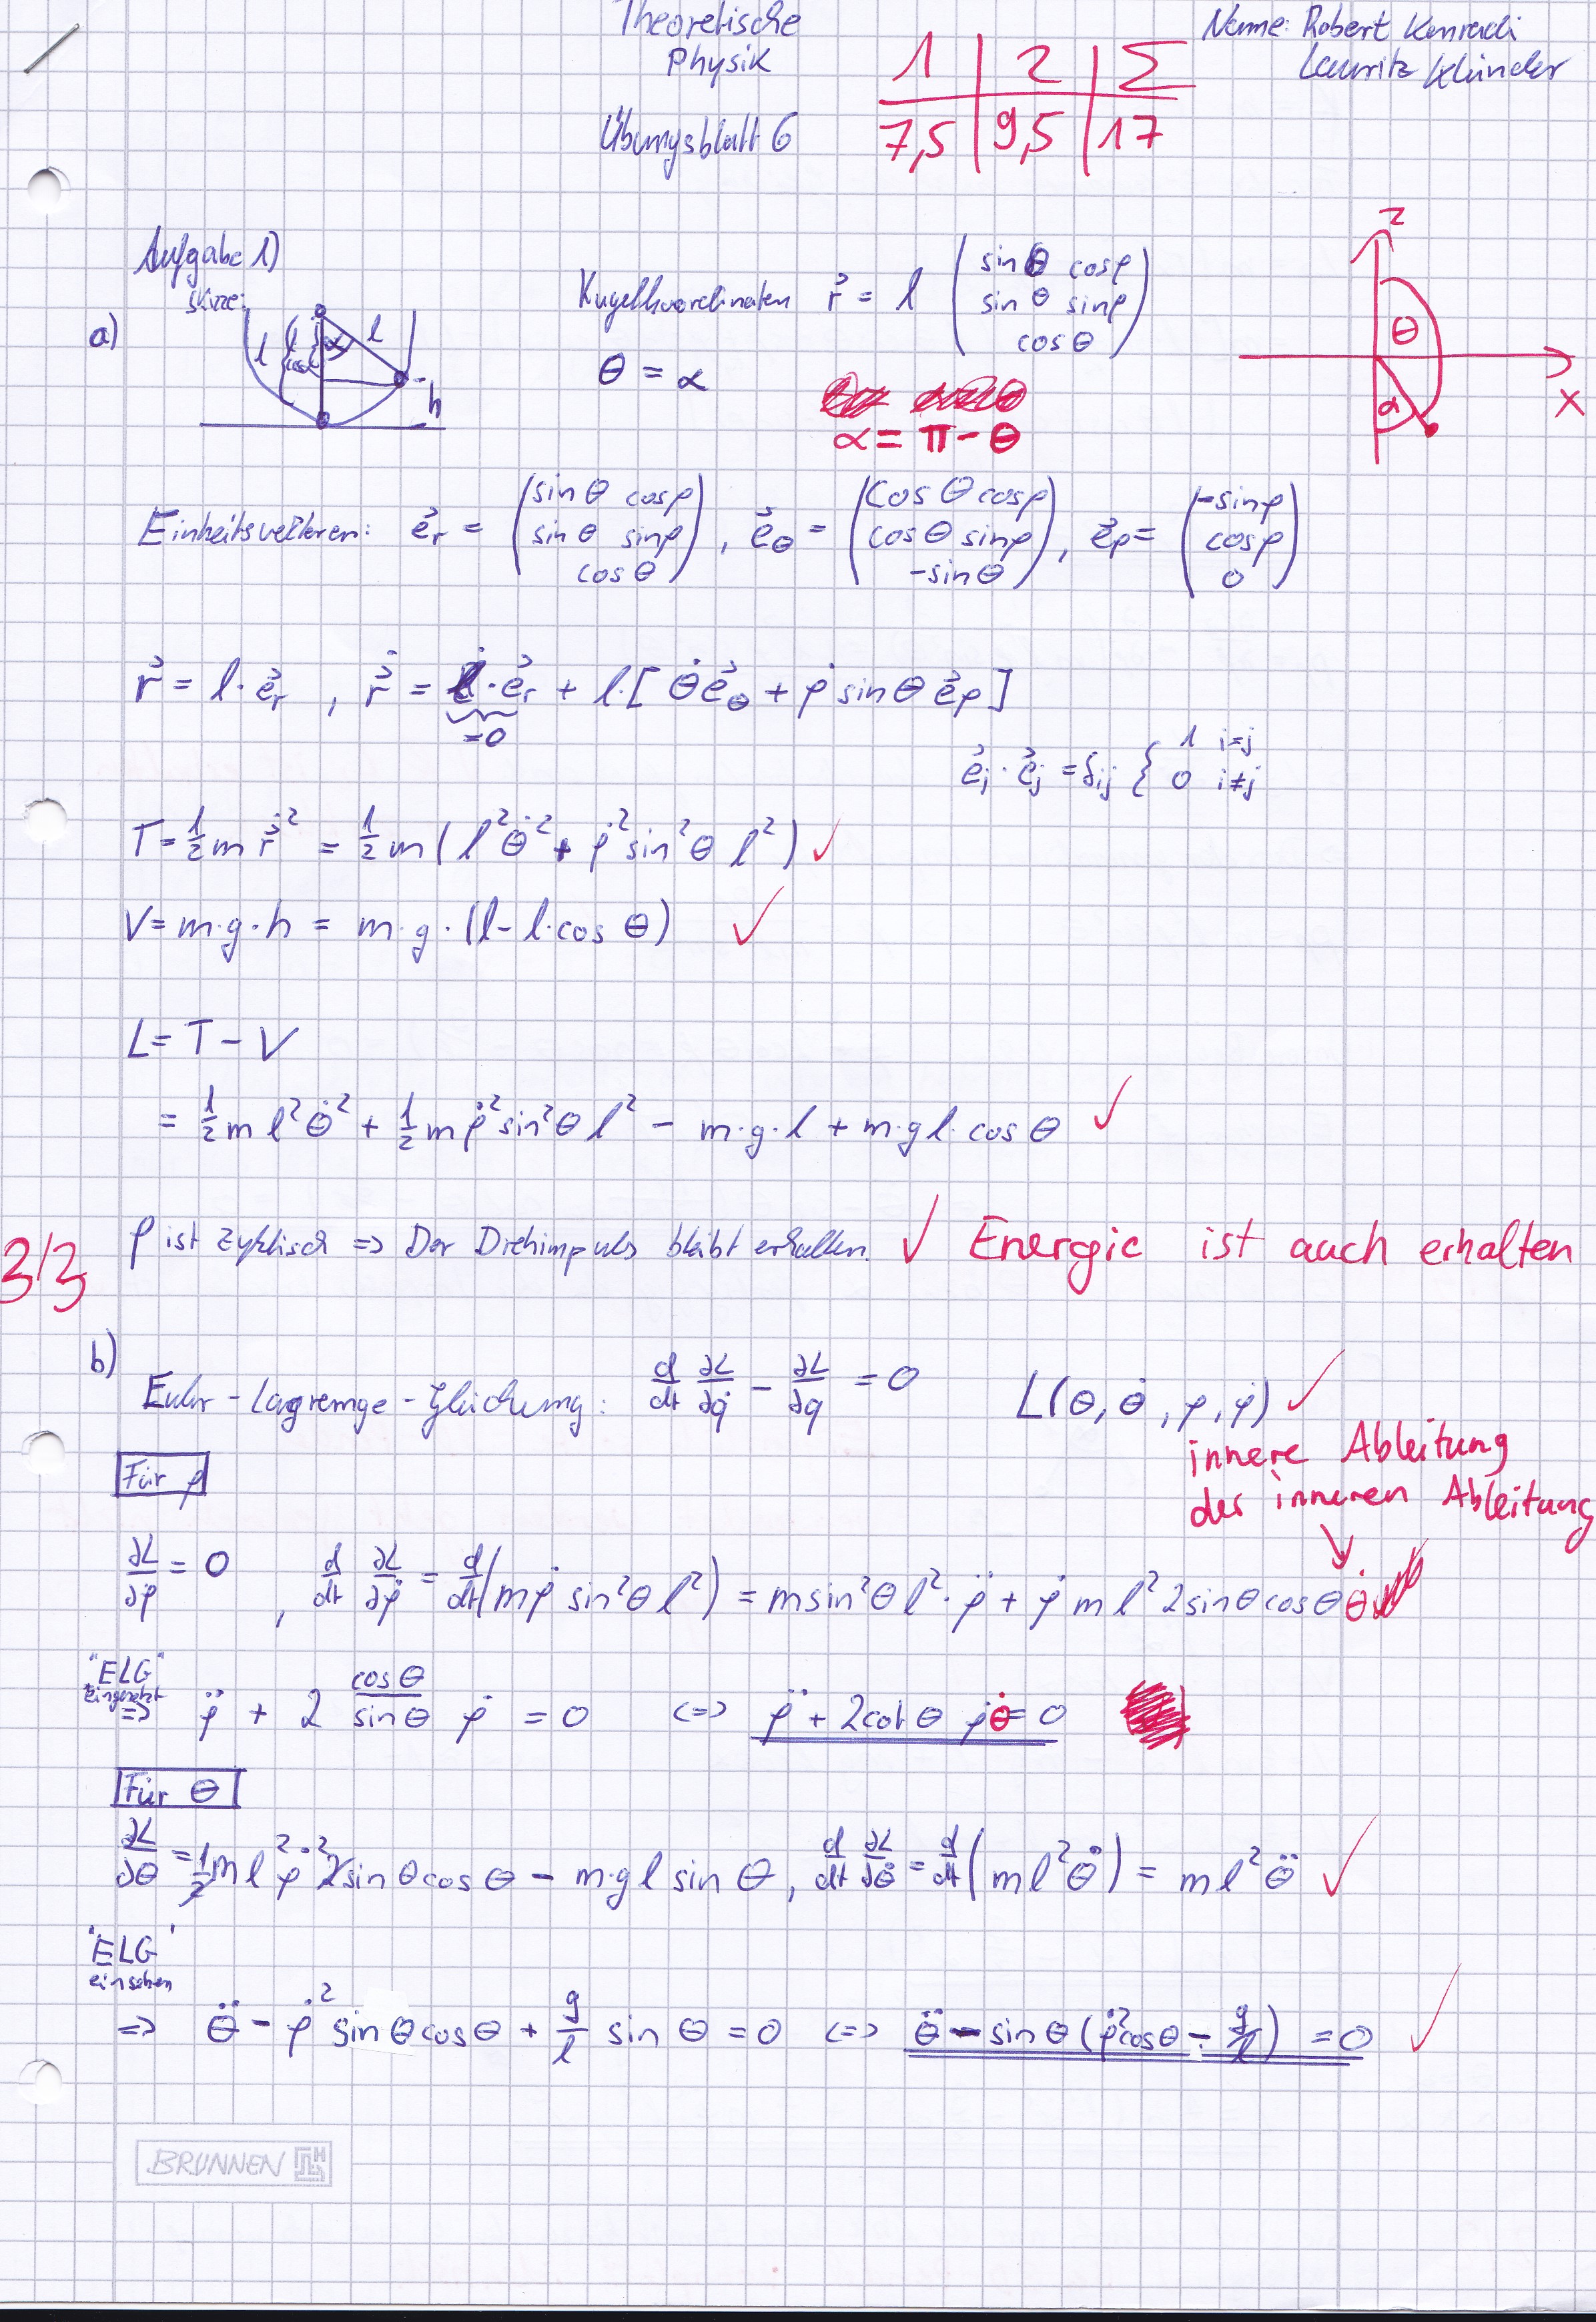 Theoretische
Physik
Übungsblatt 6
1 | 2 | Σ
7,5 | 9,5 | 17
Name: Robert Konradi
Lauritz Klünder
Aufgabe 1)
Skizze:
a)
l l cos α α l h
Kugelkoordinaten r⃗ = l (sin θ cos φ, sin θ sin φ, cos θ)
θ = α
α = π - θ
z θ α x
Einheitsvektoren: e⃗_r = (sin θ cos φ, sin θ sin φ, cos θ), e⃗_θ = (cos θ cos φ, cos θ sin φ, -sin θ), e⃗_φ = (-sin φ, cos φ, 0)
r⃗ = l · e⃗_r , r⃗̇ = l̇ · e⃗_r + l · [θ̇ e⃗_θ + φ̇ sin θ e⃗_φ]
=0
e⃗_i · e⃗_j = δ_ij { 1 i=j
0 i≠j
T = 1/2 m r⃗̇² = 1/2 m (l² θ̇² + φ̇² sin² θ l²) ✓
V = m·g·h = m·g·(l - l·cos θ) ✓
L = T - V
= 1/2 m l² θ̇² + 1/2 m φ̇² sin² θ l² - m·g·l + m·g l·cos θ ✓
3/3
φ ist zyklisch => Der Drehimpuls bleibt erhalten. ✓ Energie ist auch erhalten
b)
Euler-Lagrange-Gleichung: d/dt ∂L/∂q̇ - ∂L/∂q = 0 L(θ, θ̇, φ, φ̇) ✓
innere Ableitung
der inneren Ableitung
Für φ
∂L/∂φ = 0 , d/dt ∂L/∂φ̇ = d/dt (m φ̇ sin² θ l²) = m sin² θ l² · φ̈ + φ̇ m l² 2 sin θ cos θ θ̇
"ELG"
eingesetzt
=> φ̈ + 2 cos θ/sin θ φ̇ = 0 <=> φ̈ + 2 cot θ φ̇ θ̇ = 0
Für θ
∂L/∂θ = 1/2 m l² φ̇² 2 sin θ cos θ - m·g l sin θ, d/dt ∂L/∂θ̇ = d/dt (m l² θ̇) = m l² θ̈ ✓
"ELG"
einsetzen
=> θ̈ - φ̇² sin θ cos θ + g/l sin θ = 0 <=> θ̈ - sin θ (φ̇² cos θ - g/l) = 0 ✓
BRUNNEN